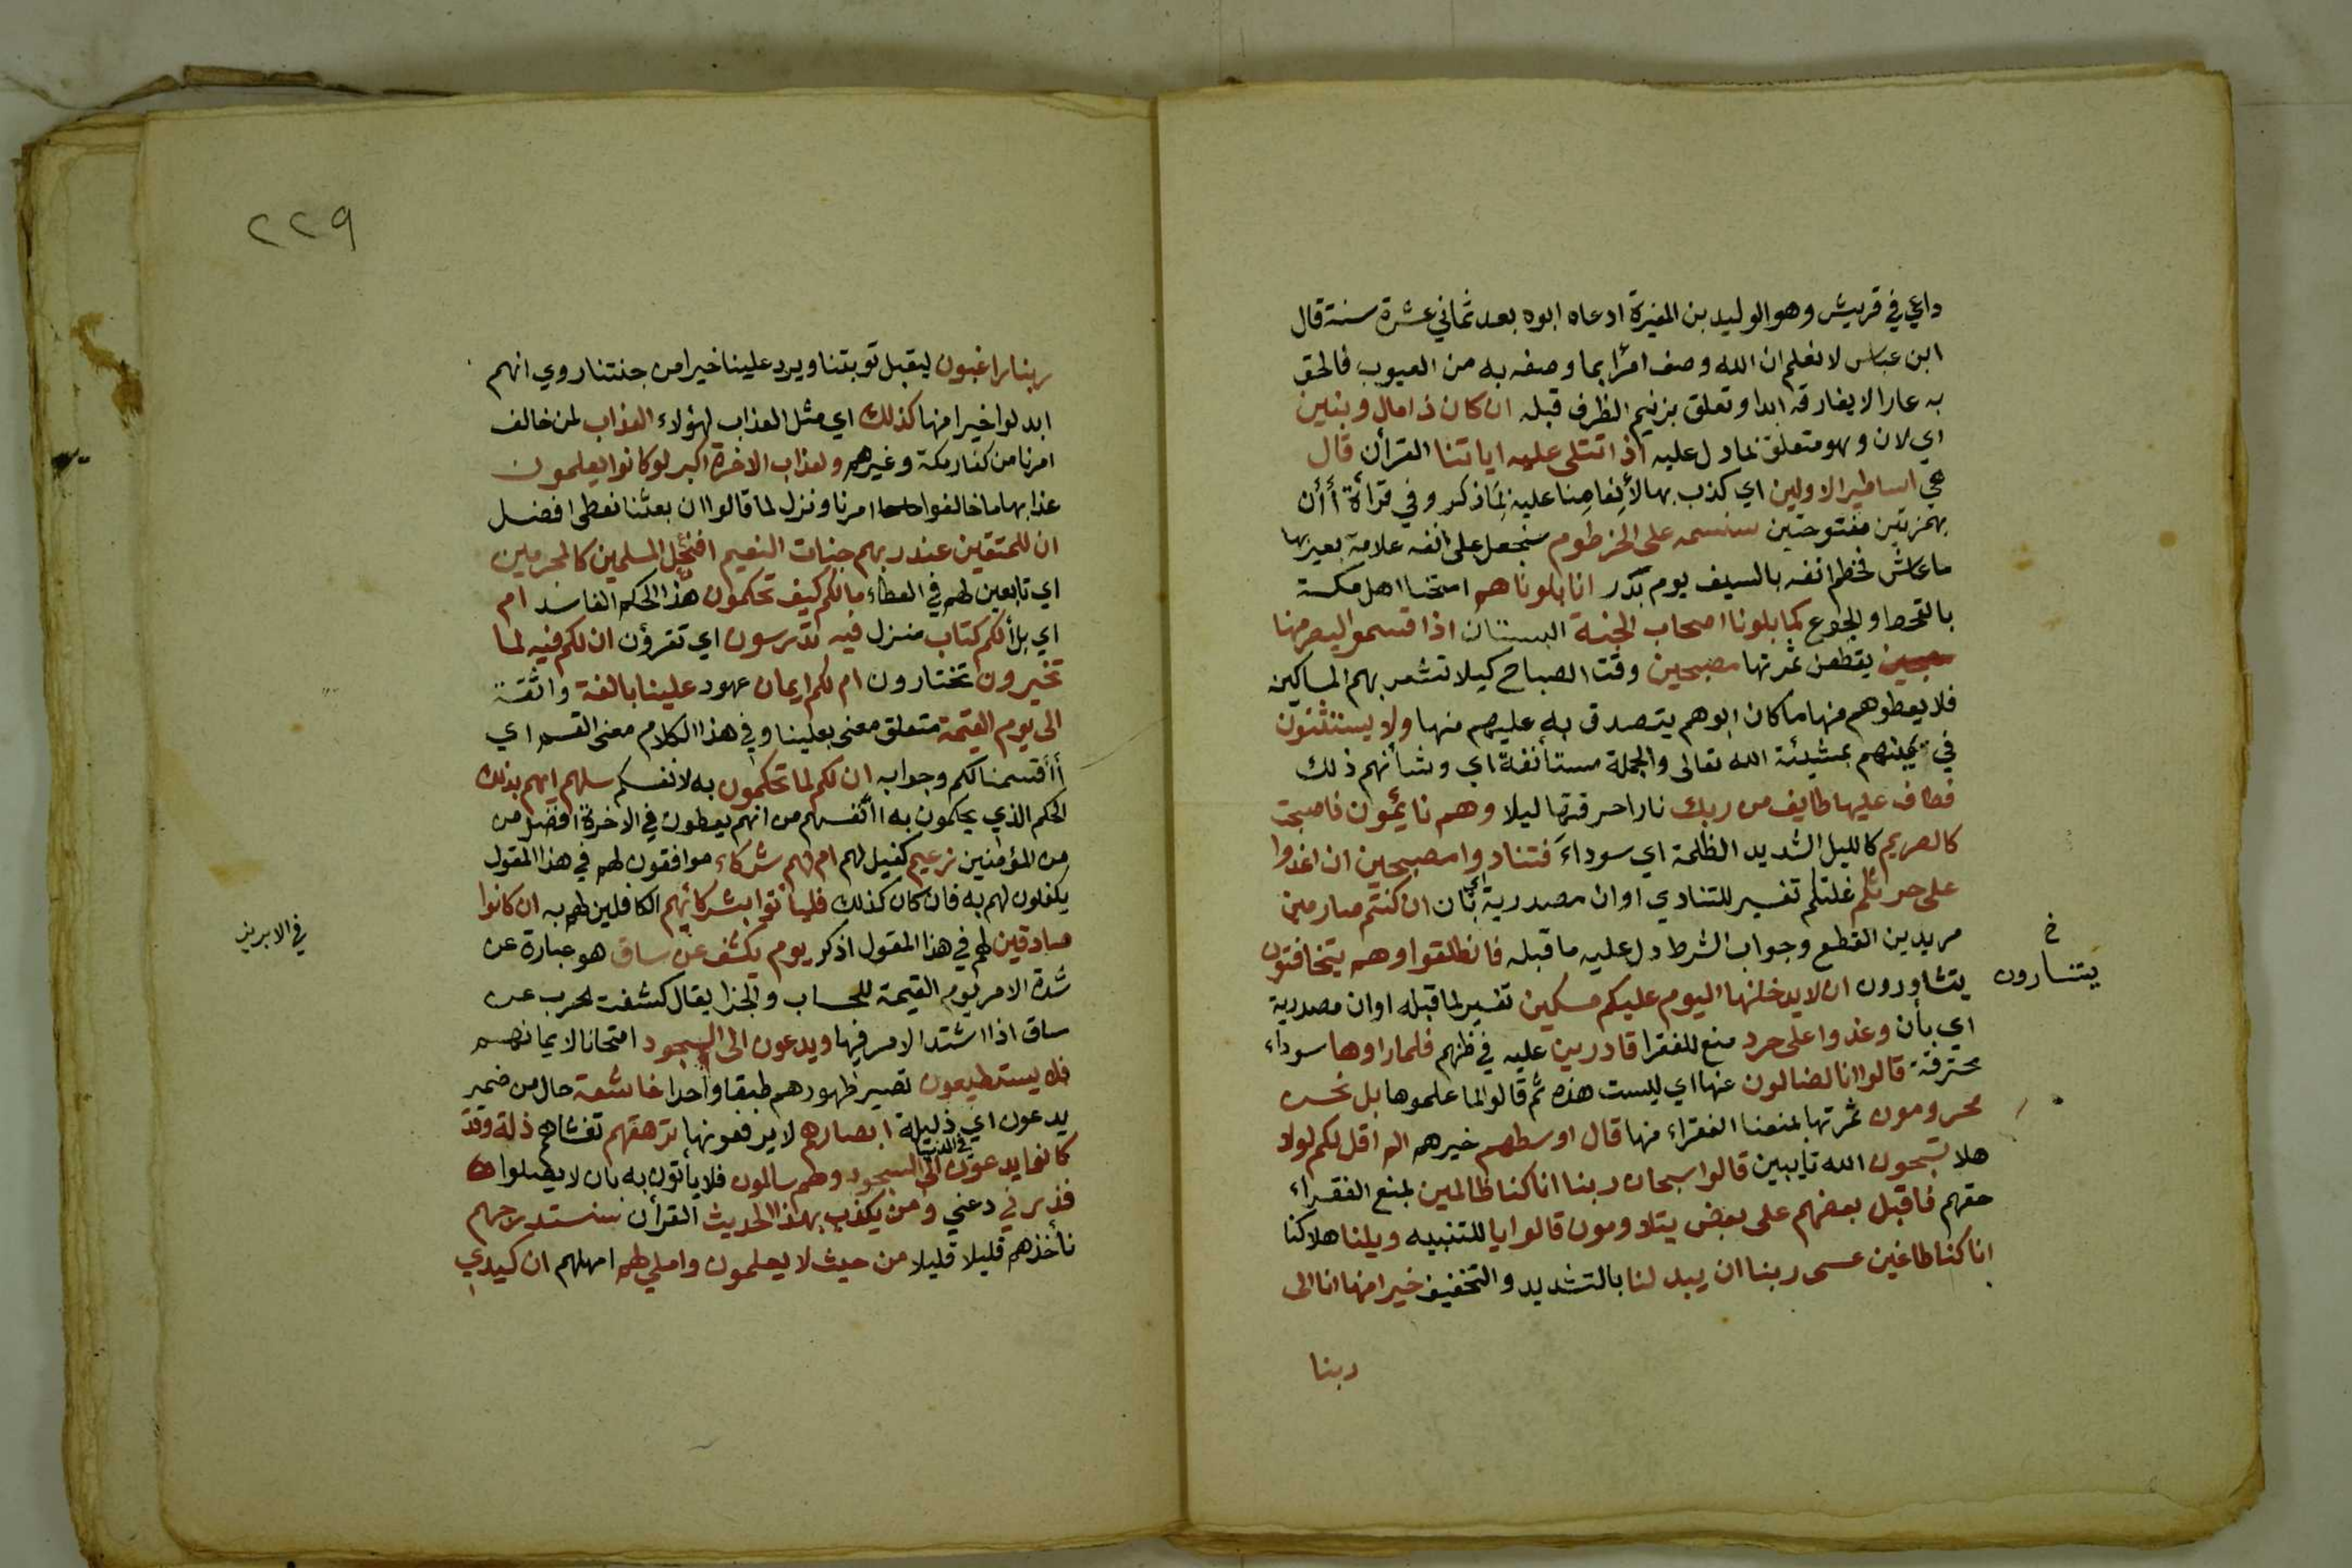 داعي في قريش وهو الوليد بن المغيرة ادعاه ابوه بعد ثماني عشرة سنة قال
ابن عباس لا نعلم ان الله وصف امرأ بما وصفه به من العيوب فالحق
به عارا لا يفارقه ابدا وتعلق بزنيم الظرف قبله ان كان ذا مال وبنين
اي لان وهو متعلق بما دل عليه اذا تتلى عليه اياتنا القرأن قال
هي اساطير الاولين اي كذب بها لأنعامنا عليه بما ذكر وفي قرأة أأن
بهمزتين مفتوحتين سنسمه على الخرطوم سنجعل على انفه علامة يعير بها
ما عاش فخطم انفه بالسيف يوم بدر انا بلوناهم امتحنا اهل مكة
بالقحط والجوع كما بلونا اصحاب الجنة البستان اذا قسموا ليصرمنها
يقطعن ثمرتها مصبحين وقت الصباح كيلا تشعر بهم المساكين
فلا يعطوهم منها ما كان ابوهم يتصدق به عليهم منها ولا يستثنون
في يمينهم بمشيئة الله تعالى والجملة مستأنفة اي وشأنهم ذلك
فطاف عليها طايف من ربك نارا حرقتها ليلا وهم نايمون فاصبحت
كالصريم كالليل الشديد الظلمة اي سوداء فتنادوا مصبحين ان اغدوا
على حرثكم غلتكم تفسير للتنادي او ان مصدرية اي بان ان كنتم صارمين
مريدين القطع وجواب الشرط دل عليه ما قبله فانطلقوا وهم يتخافتون
يتشاورون ان لا يدخلنها اليوم عليكم مسكين تفسير لما قبله او ان مصدرية
خ
يتسارون
اي بأن وغدوا على حرد منع للفقرا قادرين عليه في ظنهم فلما راوها سوداء
محترقة قالوا انا لضالون عنها اي ليست هذه ثم قالوا لما علموها بل نحن
محرومون ثمرتها بمنعنا الفقراء منها قال اوسطهم خيرهم الم اقل لكم لولا
هلا تسبحون الله تايبين قالوا سبحان ربنا انا كنا ظالمين بمنع الفقراء
حقهم فاقبل بعضهم على بعض يتلاومون قالوا يا للتنبيه ويلنا هلاكنا
انا كنا طاغين عسى ربنا ان يبدلنا بالتشديد والتخفيف خيرا منها انا الى
ربنا
٢٢٩
ربنا راغبون ليقبل توبتنا ويرد علينا خيرا من جنتنا روي انهم
ابدلوا خيرا منها كذلك اي مثل العذاب لهؤلاء العذاب لمن خالف
امرنا من كفار مكة وغيرهم ولعذاب الاخرة اكبر لو كانوا يعلمون
عذابها ما خالفوا امرنا ونزل لما قالوا ان بعثنا نعطى افضل
ان للمتقين عند ربهم جنات النعيم افنجعل المسلمين كالمجرمين
اي تابعين لهم في العطاء مالكم كيف تحكمون هذا الحكم الفاسد ام
اي بل ألكم كتاب منزل فيه تدرسون اي تقرؤن ان لكم فيه لما
تخيرون تختارون ام لكم ايمان عهود علينا بالغة واثقة
الى يوم القيمة متعلق معنى بعلينا وفي هذا الكلام معنى القسم اي
أأقسمنا لكم وجوابه ان لكم لما تحكمون به لانفسكم سلهم ايهم بذلك
الحكم الذي يحكمون به لانفسهم من انهم يعطون في الاخرة افضل من
من المؤمنين زعيم كفيل لهم ام لهم شركاء موافقون لهم في هذا المقول
يكفلون لهم به فان كان كذلك فليأتوا بشركائهم الكافلين لهم به ان كانوا
صادقين لهم في هذا المقول اذكر يوم يكشف عن ساق هو عبارة عن
في الابريز
شدة الامر يوم القيمة للحساب والجزا يقال كشفت الحرب عن
ساق اذا اشتد الامر فيها ويدعون الى السجود امتحانا لايمانهم
فلا يستطيعون تصير ظهورهم طبقا واحدا خاشعة حال من ضمير
يدعون اي ذليلة ابصارهم لا يرفعونها ترهقهم تغشاهم ذلة وقد
كانوا يدعون في الدنيا الى السجود وهم سالمون فلا يأتون به بان لا يصلوا
فذرني دعني ومن يكذب بهذا الحديث القرأن سنستدرجهم
نأخذهم قليلا قليلا من حيث لا يعلمون واملي لهم امهلهم ان كيدي